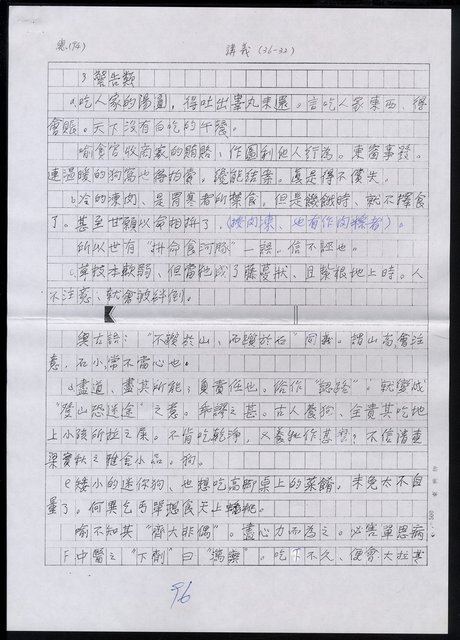 總(74)
講義(36-32)
3警告類
a吃人家的湯圓，得吐出睾丸來還。言吃人家東西、得
會賬。天下沒有白吃的午餐。
喻貪官收商家的賄賂、作圖利他人行為。東窗事發。
連溫暖的狗窩也得拍賣，纔能結案。真是得不償失。
b冷的凍肉、是胃寒者所禁食，但是饑餓時、就不擇食
了。甚至甘願以命相拼了，(按肉凍、也有作肉粿者)。
所以世有"拼命食河豚"一語。信不誣也。
c草技本軟弱、但當牠成了藤蔓狀、且繫根地上時。人
不注意、就會被絆倒。
與古語："不躓於山、而躓於石"同義。謂山高會注
意，石小，常不當心也。
d盡道、盡其所能；負責任也。俗作"認路"。就變成
"登山恐迷途"之意。乖謬之甚。古人養狗、全責其吃地
上小孩所拉之屎。不肯吃乾淨，又養牠作甚？不信請查
梁實秋之雅舍小品。狗。
e矮小的迷你狗、也想吃高腳桌上的菜餚，未免太不自
量了。何異乞丐單想食天上蟠桃。
喻不知其"齊大非偶"。盡心力而為之。必害單思病
F中醫之"下劑"曰"瀉藥"。吃下不久、便會大拉其
96